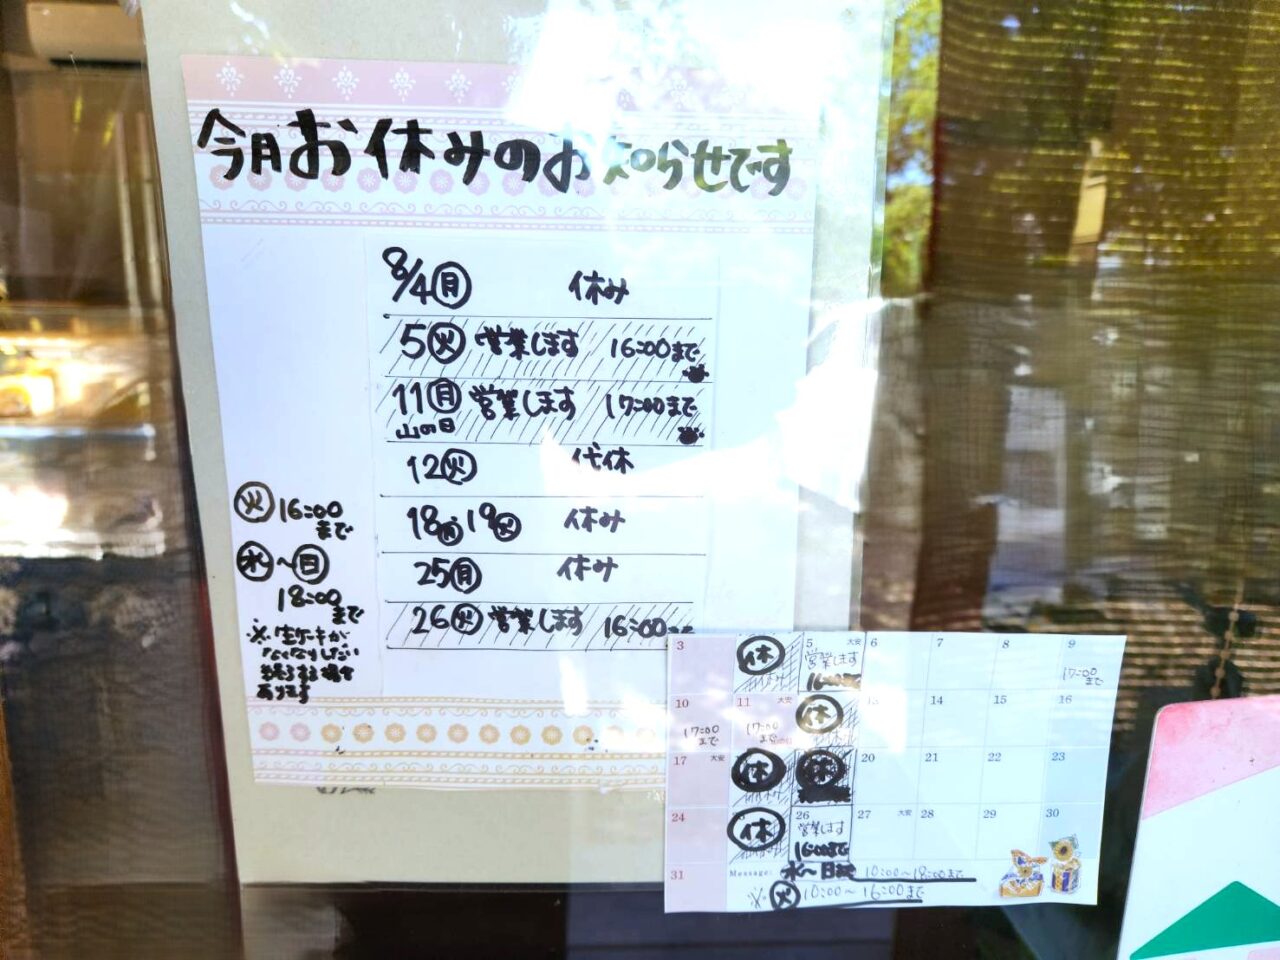 今月お休みのお知らせです
8/4月 休み
5火 営業します 16:00まで
11月 営業します 17:00まで
山の日
12火 代休
18月・19火 休み
25月 休み
26火 営業します 16:00まで
火 16:00
まで
水〜日
18:00
まで
※生ケーキが
なくなりしだい
終了する場合
あります
3 休 5 大安 6 7 8 9
営業します
16:00まで 17:00
まで
10 11 大安 休 13 14 15 16
17:00 17:00
まで まで
17 大安 休 休 20 21 22 23
24 休 26 27 大安 28 29 30
営業します
16:00まで
31 Message: 水〜日 10:00〜18:00まで
※火 10:00〜16:00まで